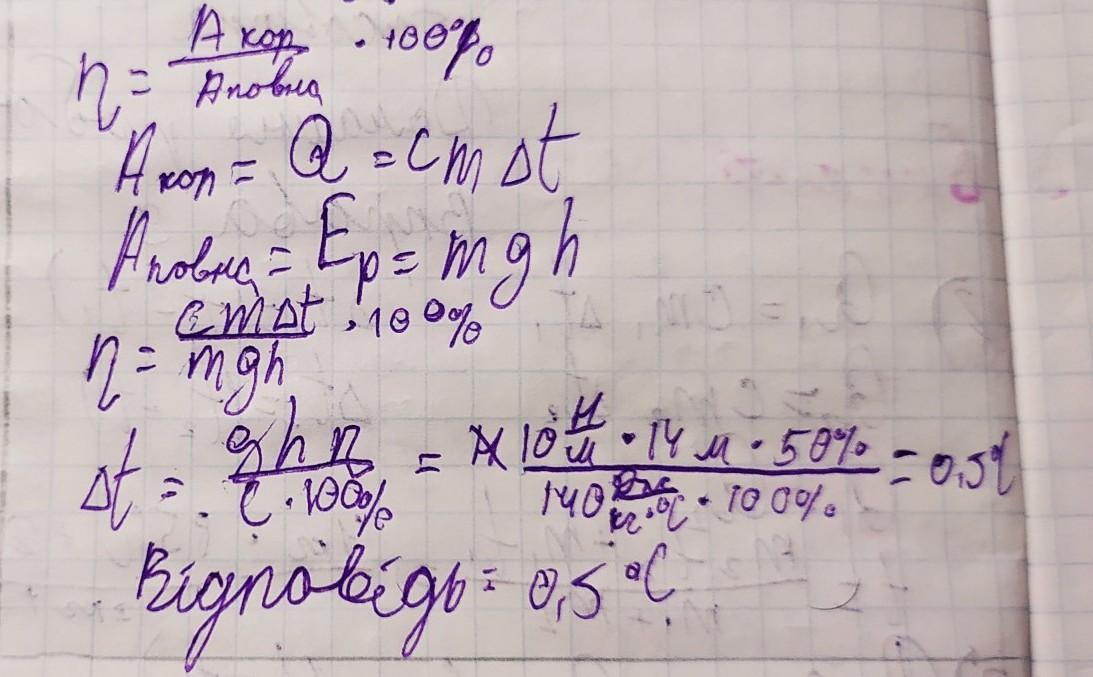 η = Aкор / Aповна · 100%
Aкоп = Q = cmΔt
Aповна = Ep = mgh
η = cmΔt / mgh · 100%
Δt = ghη / c · 100% = 10 Н/м · 14 м · 50% / 140 Дж/кг·°C · 100% = 0,5°C
Відповідь: 0,5 °C